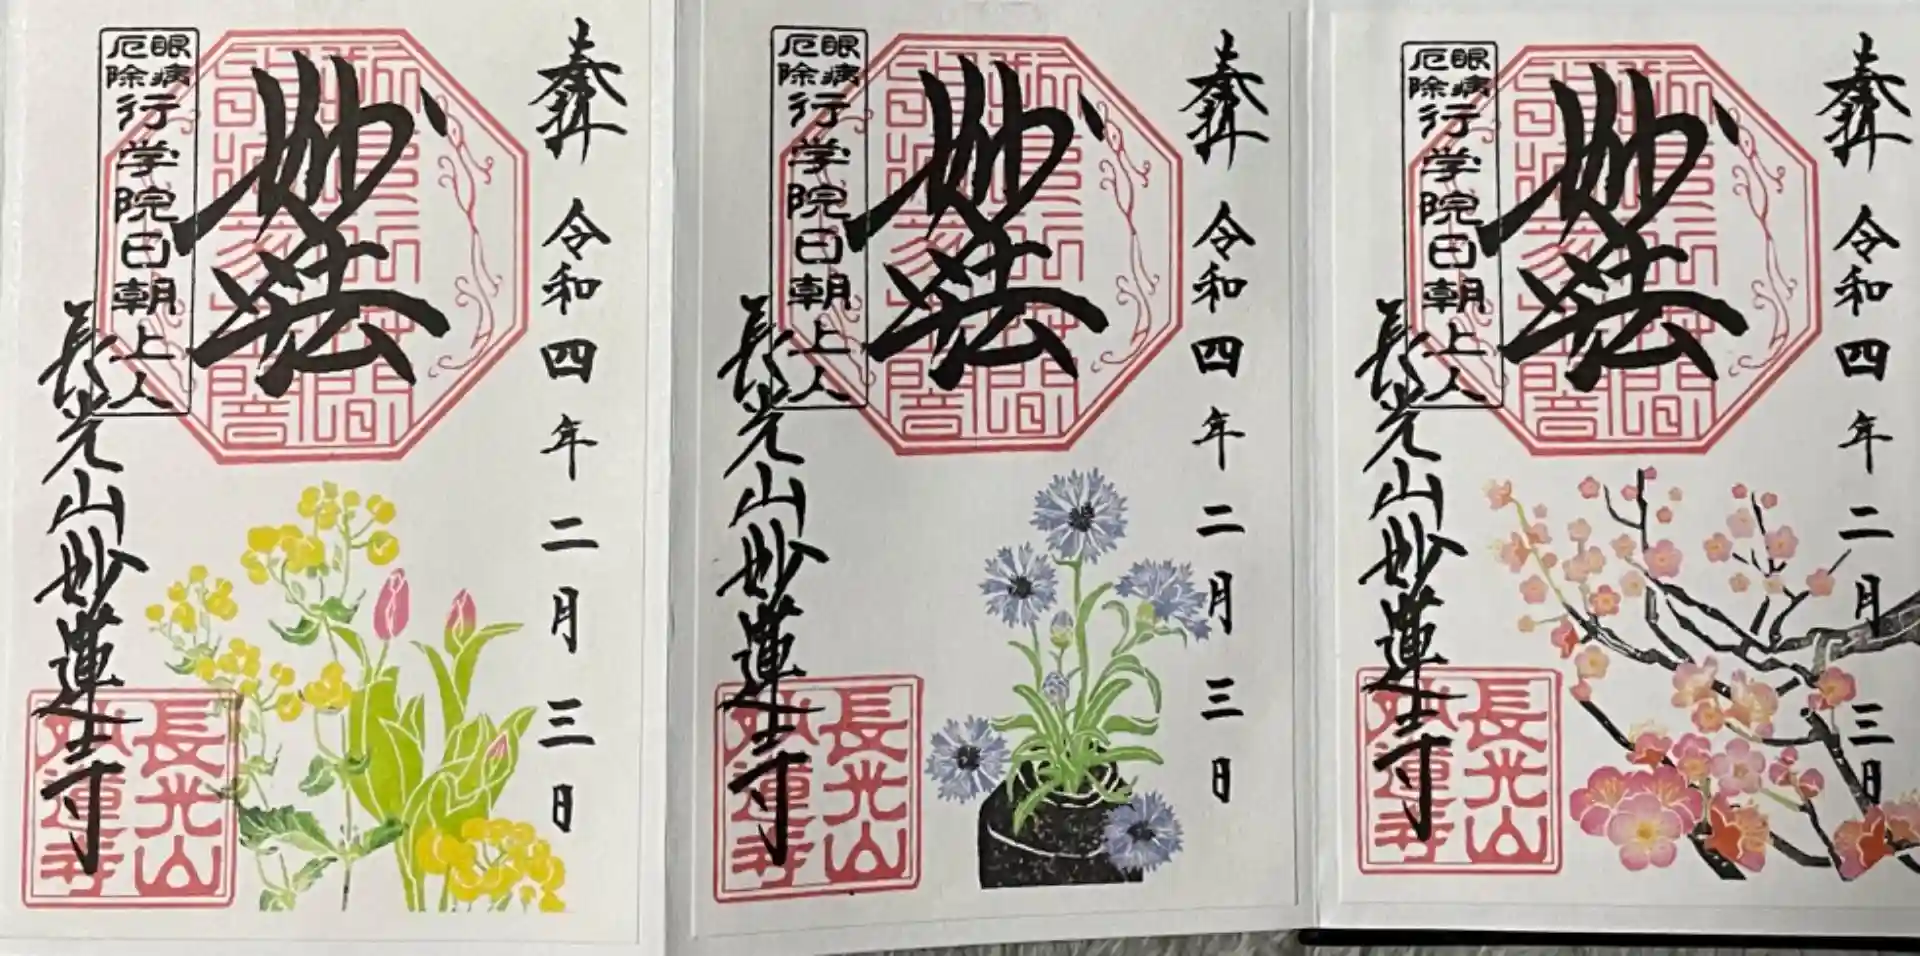 奉拝 令和四年二月三日
妙法
眼病
厄除
行学院日朝上人
長光山妙蓮寺
長光山
妙蓮寺
奉拝 令和四年二月三日
妙法
眼病
厄除
行学院日朝上人
長光山妙蓮寺
長光山
妙蓮寺
奉拝 令和四年二月三日
妙法
眼病
厄除
行学院日朝上人
長光山妙蓮寺
長光山
妙蓮寺